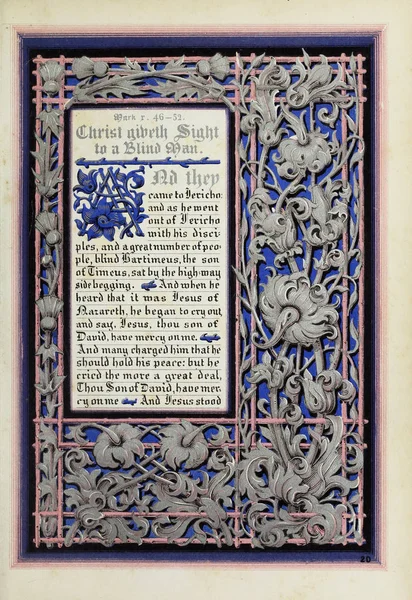 Mark x. 46–52.
Christ giveth Sight
to a Blind Man.
And they
came to Jericho:
and as he went
out of Jericho
with his disci-
ples, and a great number of peo-
ple, blind Bartimeus, the son
of Timeus, sat by the high-way
side begging. And when he
heard that it was Jesus of
Nazareth, he began to cry out,
and say, Jesus, thou son of
David, have mercy on me.
And many charged him that he
should hold his peace: but he
cried the more a great deal,
Thou Son of David, have mer-
cy on me And Jesus stood
20